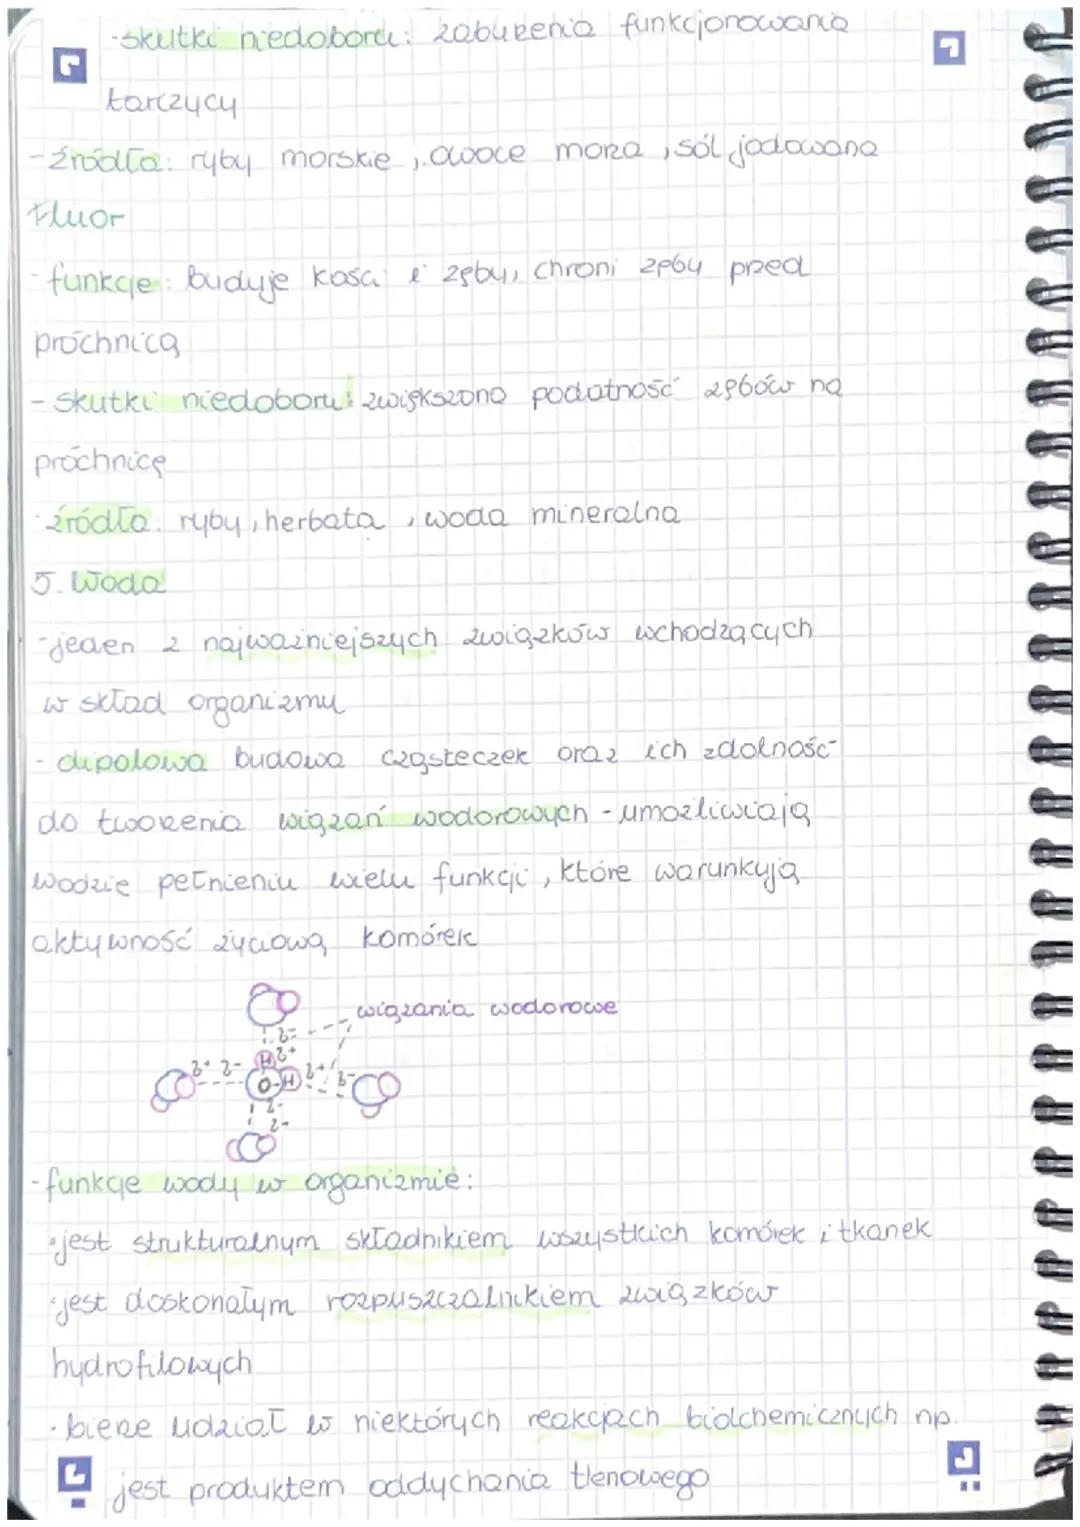 -skutki niedoboru: zaburzenia funkcjonowania
tarczycy
-źródła: ryby morskie, owoce morza, sól jodowana
Fluor
-funkcje: buduje kości i zęby, chroni zęby przed
próchnicą
-skutki niedoboru: zwiększona podatność zębów na
próchnicę
-źródła: ryby, herbata, woda mineralna
5. Woda
-jeden z najważniejszych związków wchodzących
w skład organizmu
-dipolowa budowa cząsteczek oraz ich zdolność
do tworzenia wiązań wodorowych - umożliwiają
wodzie pełnieniu wielu funkcji, które warunkują
aktywność życiową komórek
wiązania wodorowe
δ-
H δ+
δ+ δ- O-H δ+ δ-
δ-
δ-
-funkcje wody w organizmie:
•jest strukturalnym składnikiem wszystkich komórek i tkanek
•jest doskonałym rozpuszczalnikiem związków
hydrofilowych
•bierze udział w niektórych reakcjach biolchemicznych np.
jest produktem oddychania tlenowego